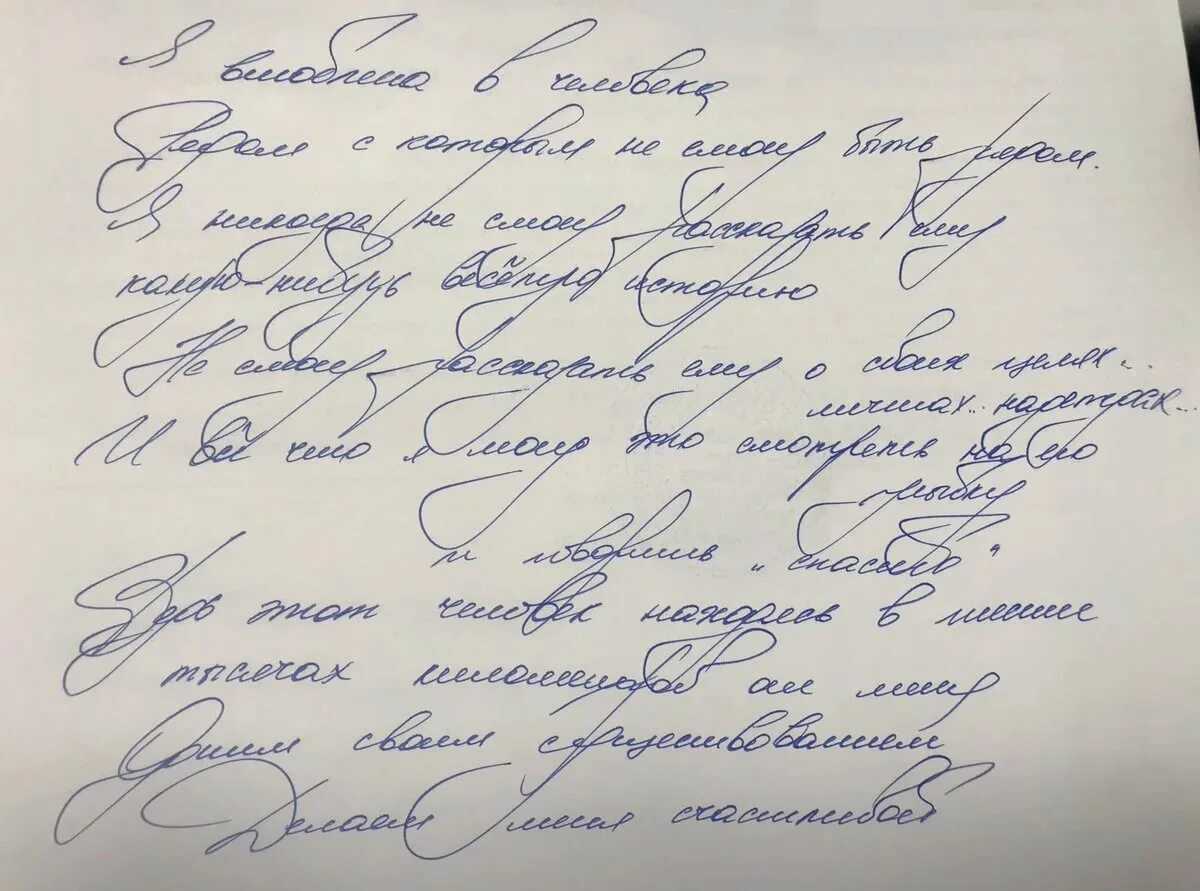 Я влюблена в человека
Рядом с которым не смогу быть рядом.
Я никогда не смогу рассказать ему
какую-нибудь весёлую историю
Не смогу рассказать ему о своих целях...
мечтах... надеждах...
И всё что я могу это смотреть на его
улыбку
и говорить „спасибо“
Ведь этот человек находясь в шести
тысячах километров от меня
Одним своим существованием
Делает меня счастливой